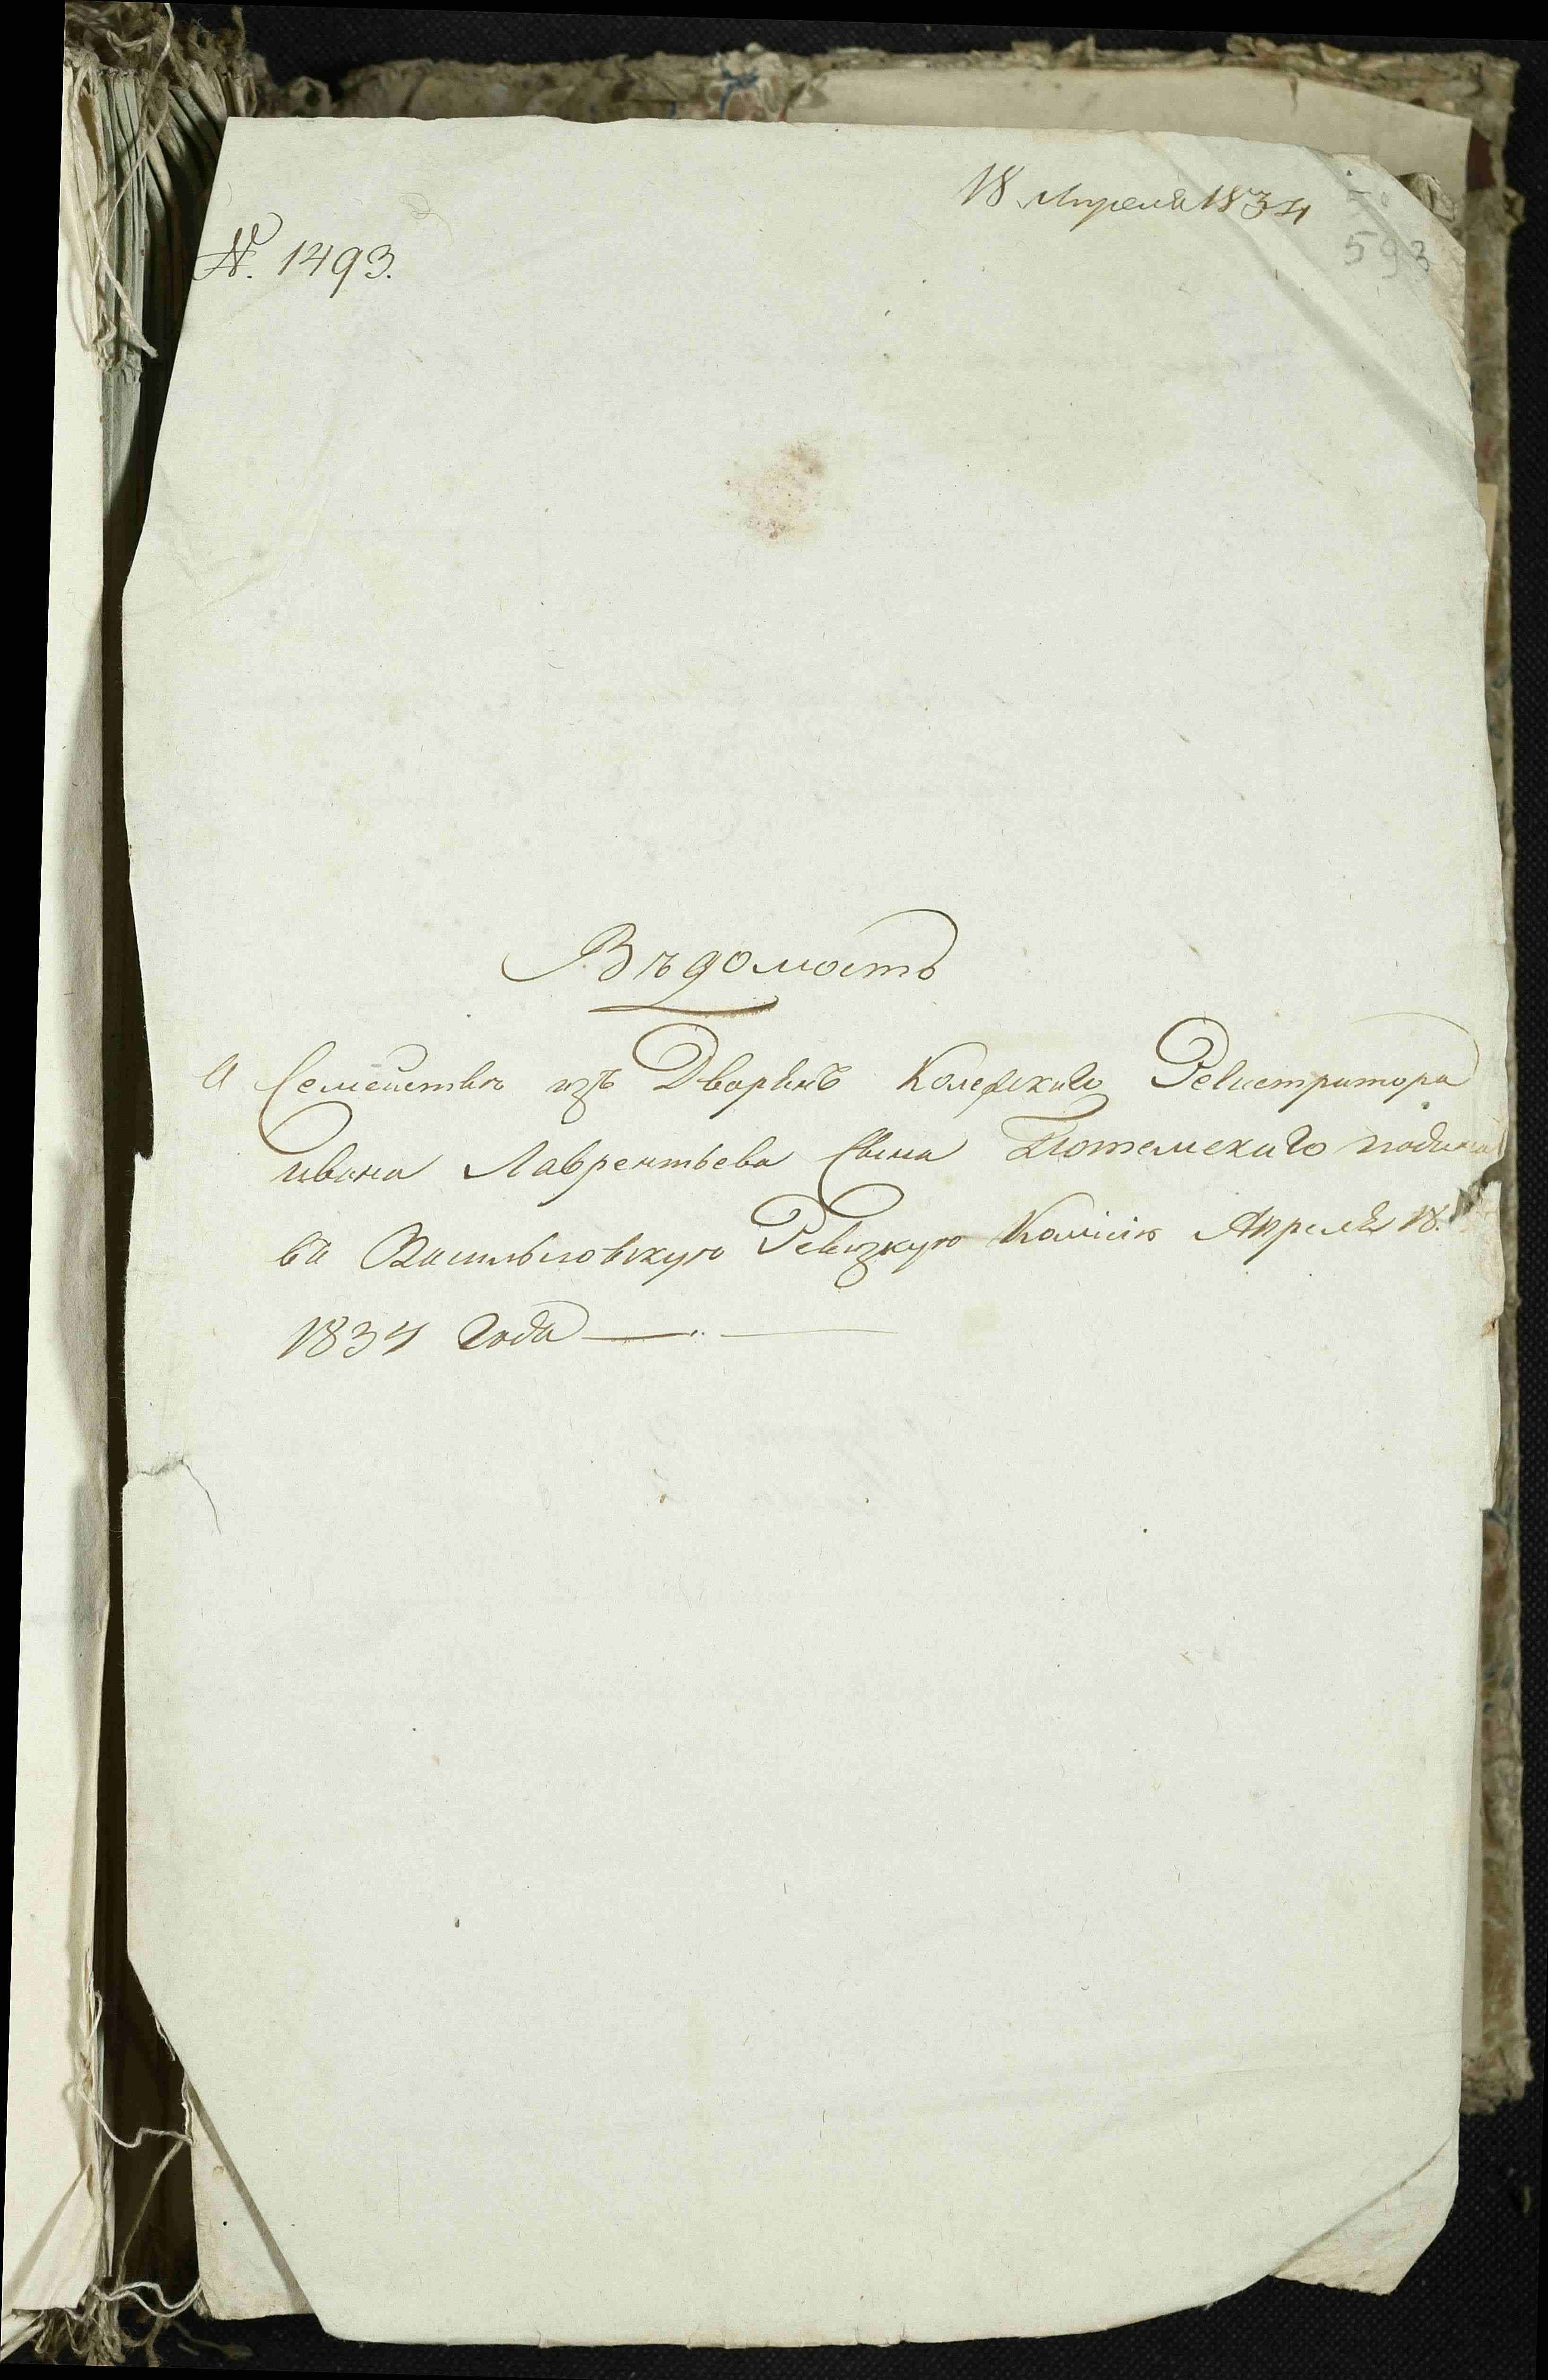 18 Апреля 1834
593
№. 1493.
Вѣдомость
О Семействѣ изъ Дворянъ Колежскаго Регистратора
ивана Лаврентьева Сына Потемскаго подана
въ Васильковскую Ревизкую Комісію Апреля 18.
1834 года